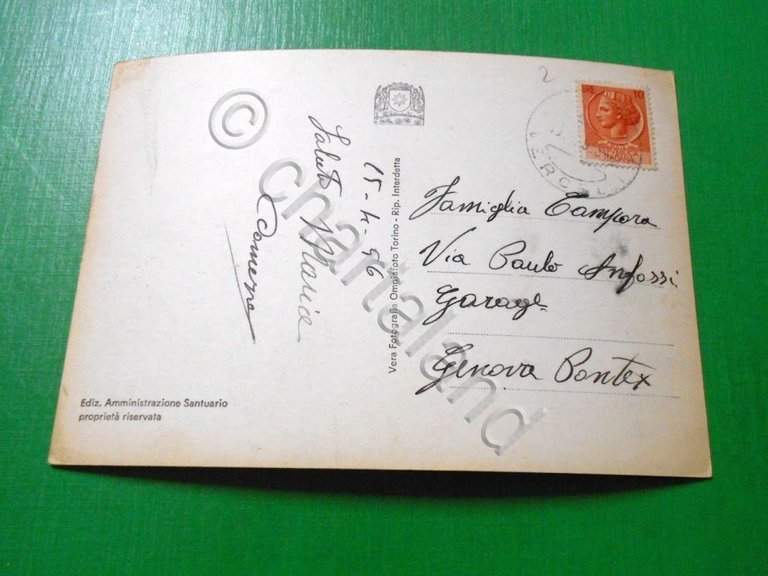 15-4-56
Saluti Maria
Famiglia Campora
Via Paolo Anfossi
Garage
Genova Pontex
Vera Fotografia Omniafoto Torino - Rip. Interdetta
Ediz. Amministrazione Santuario
proprietà riservata
2
10
© chartaland